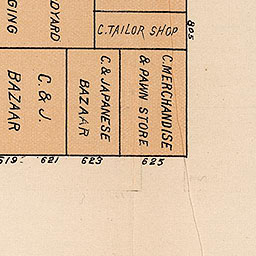 DYARD
GING
C. TAILOR SHOP
805
C. & J.
BAZAAR
C. & JAPANESE
BAZAAR
C. MERCHANDISE
& PAWN STORE
619
621
623
625